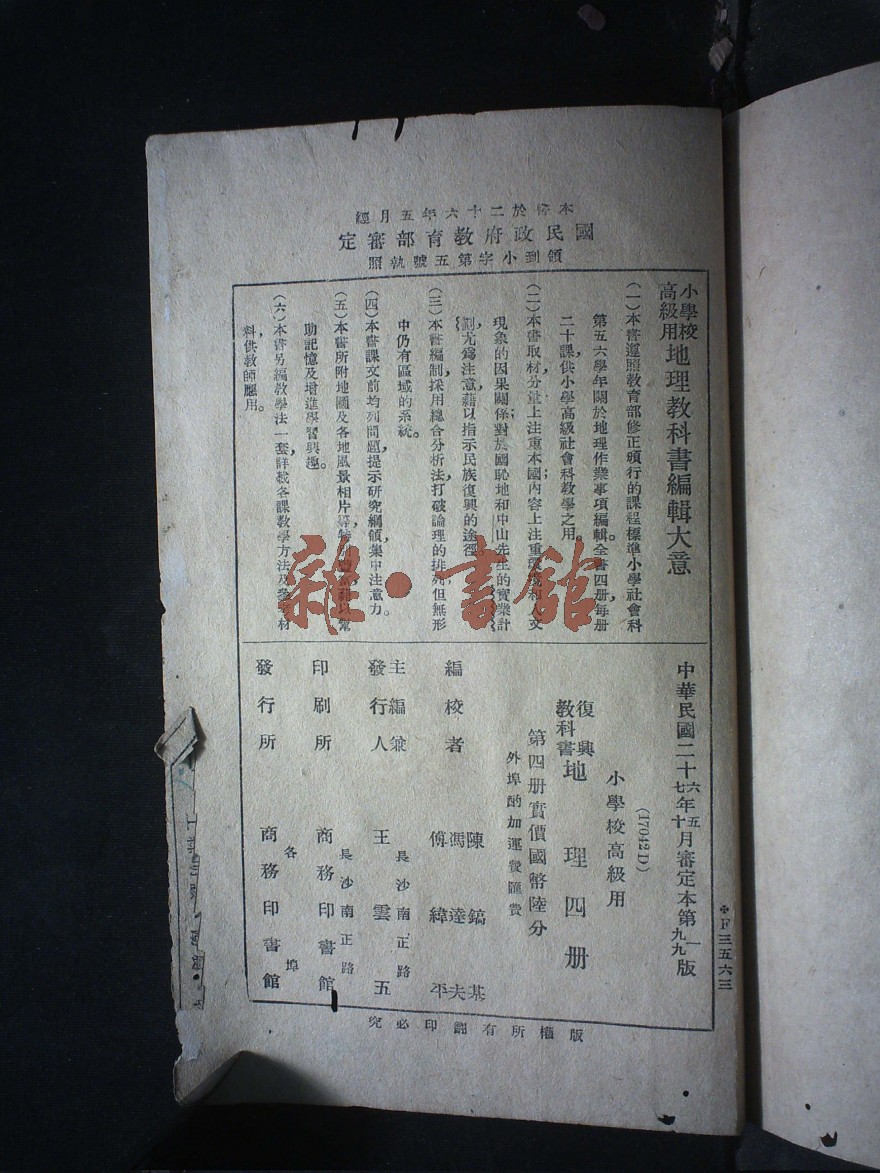 本書於二十六年五月經
國民政府教育部審定
領到小字第五號執照
小學校
高級用
地理教科書編輯大意
(一)本書遵照教育部修正頒行的課程標準小學社會科
第五六學年關於地理作業事項編輯,全書四册,每册
二十課,供小學高級社會科教學之用。
(二)本書取材,分量上注重本國;內容上注重環境和人文
現象的因果關係;對於國恥地和中山先生的實業計
劃,尤爲注意,藉以指示民族復興的途徑。
(三)本書編制,採用總合分析法,打破論理的排列,但無形
中仍有區域的系統。
(四)本書課文前均列問題,提示研究綱領,集中注意力。
(五)本書所附地圖及各地風景相片等,特別豐富,藉以幫
助記憶及增進學習興趣。
(六)本書另編教學法一套,詳載各課教學方法及參考材
料,供教師應用。
中華民國二十六年五月審定本第一版
七 十 九九
(17042D)
小學校高級用
復興
教科書
地理四册
第四册實價國幣陸分
外埠酌加運費匯費
編校者
陳鎬基
馮達夫
傅緯平
主編兼
發行人
長沙南正路
王雲五
印刷所
長沙南正路
商務印書館
發行所
各埠
商務印書館
版權所有翻印必究
✠F三五六三
雜·書館